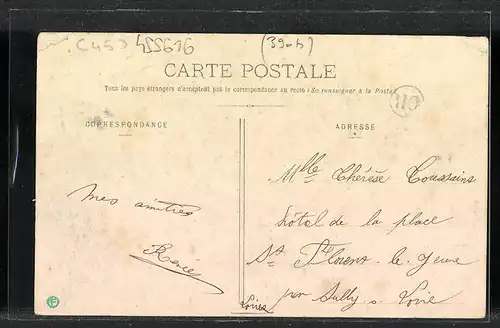 (45) 455616
(39ob)
CARTE POSTALE
Tous les pays étrangers n'acceptent pas la correspondance au recto (Se renseigner à la Poste)
OR
CORRESPONDANCE
ADRESSE
Mes amitiés
Renée
Mlle Thérèse Toussains
hôtel de la place
St Florent le Jeune
par Sully s. Loire
Loiret